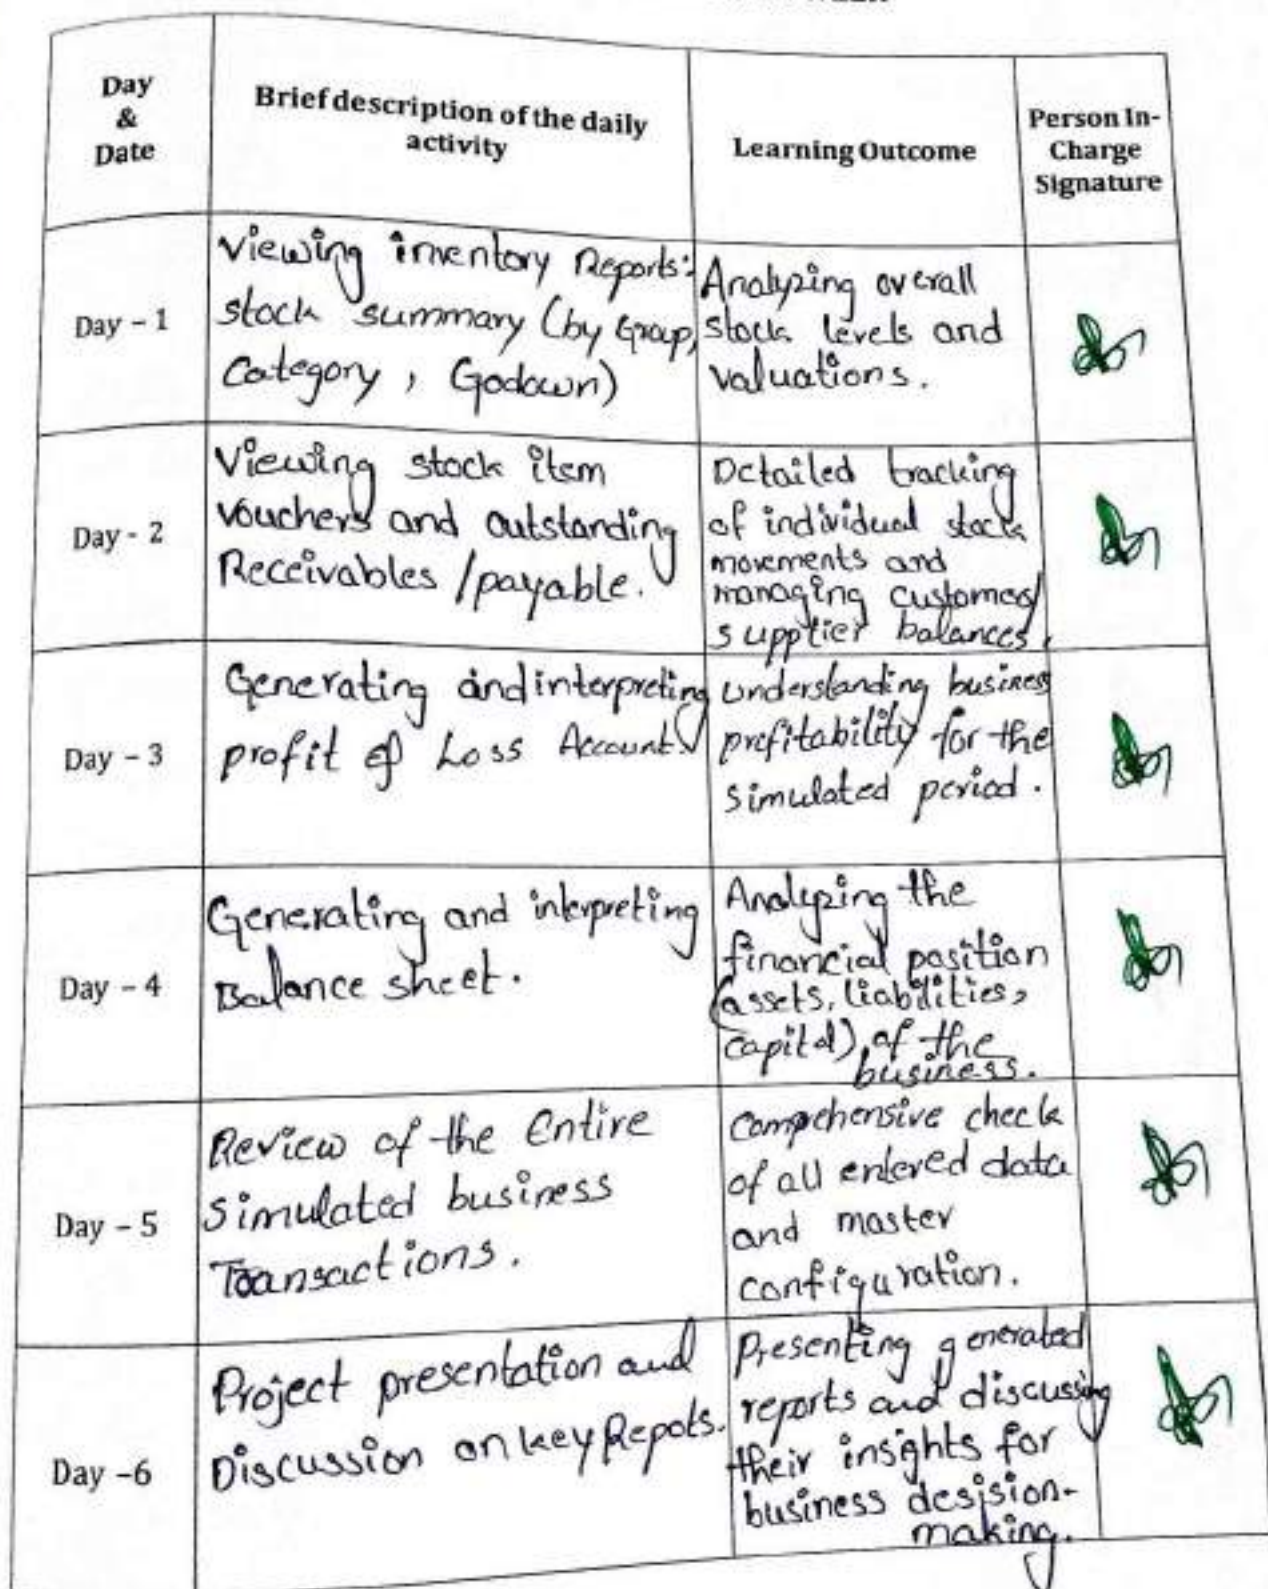 Day
&
Date
Brief description of the daily
activity
Learning Outcome
Person In-
Charge
Signature
Day - 1
Viewing inventory Reports:
stock summary (by Group,
Category, Godown)
Analyzing overall
stock levels and
valuations.
Day - 2
Viewing stock item
vouchers and outstanding
Receivables /payable.
Detailed tracking
of individual stock
movements and
managing customer/
supplier balances.
Day - 3
Generating and interpreting
profit & Loss Account.
understanding business
profitability for the
simulated period.
Day - 4
Generating and interpreting
Balance sheet.
Analyzing the
financial position
(assets, liabilities,
capital), of the
business.
Day - 5
Review of the Entire
simulated business
Transactions.
Comprehensive check
of all entered data
and master
configuration.
Day -6
Project presentation and
Discussion on key Repots.
Presenting generated
reports and discussing
their insights for
business desision-
making.